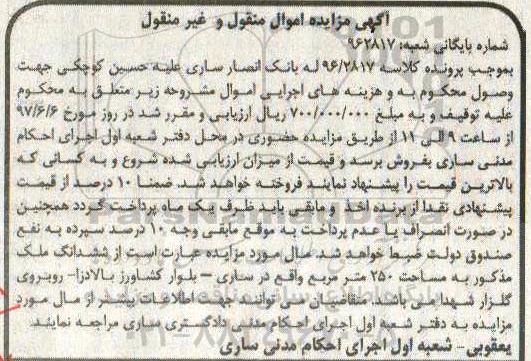 آگهی مزایده اموال منقول و غیر منقول
شماره بایگانی شعبه: ۹۶۲۸۱۷
بموجب پرونده کلاسه ۹۶/۲۸۱۷ له بانک انصار ساری علیه حسین کوچکی جهت
وصول محکوم به و هزینه های اجرایی اموال مشروحه زیر متعلق به محکوم
علیه توقیف و به مبلغ ۷۰۰/۰۰۰/۰۰۰ ریال ارزیابی و مقرر شد در روز مورخ ۹۷/۶/۶
از ساعت ۹ الی ۱۱ از طریق مزایده حضوری در محل دفتر شعبه اول اجرای احکام
مدنی ساری بفروش برسد و قیمت از میزان ارزیابی شده شروع و به کسانی که
بالاترین قیمت را پیشنهاد نمایند فروخته خواهد شد. ضمنا ۱۰ درصد از قیمت
پیشنهادی نقدا از برنده اخذ و مابقی باید ظرف یک ماه پرداخت گردد همچنین
در صورت انصراف یا عدم پرداخت به موقع مابقی وجه ۱۰ درصد سپرده به نفع
صندوق دولت ضبط خواهد شد. مال مورد مزایده عبارت است از ششدانگ ملک
مذکور به مساحت ۲۵۰ متر مربع واقع در ساری – بلوار کشاورز بالادزا- روبروی
گلزار شهدا می باشد. متقاضیان می توانند جهت اطلاعات بیشتر از مال مورد
مزایده به دفتر شعبه اول اجرای احکام مدنی دادگستری ساری مراجعه نمایند.
یعقوبی- شعبه اول اجرای احکام مدنی ساری